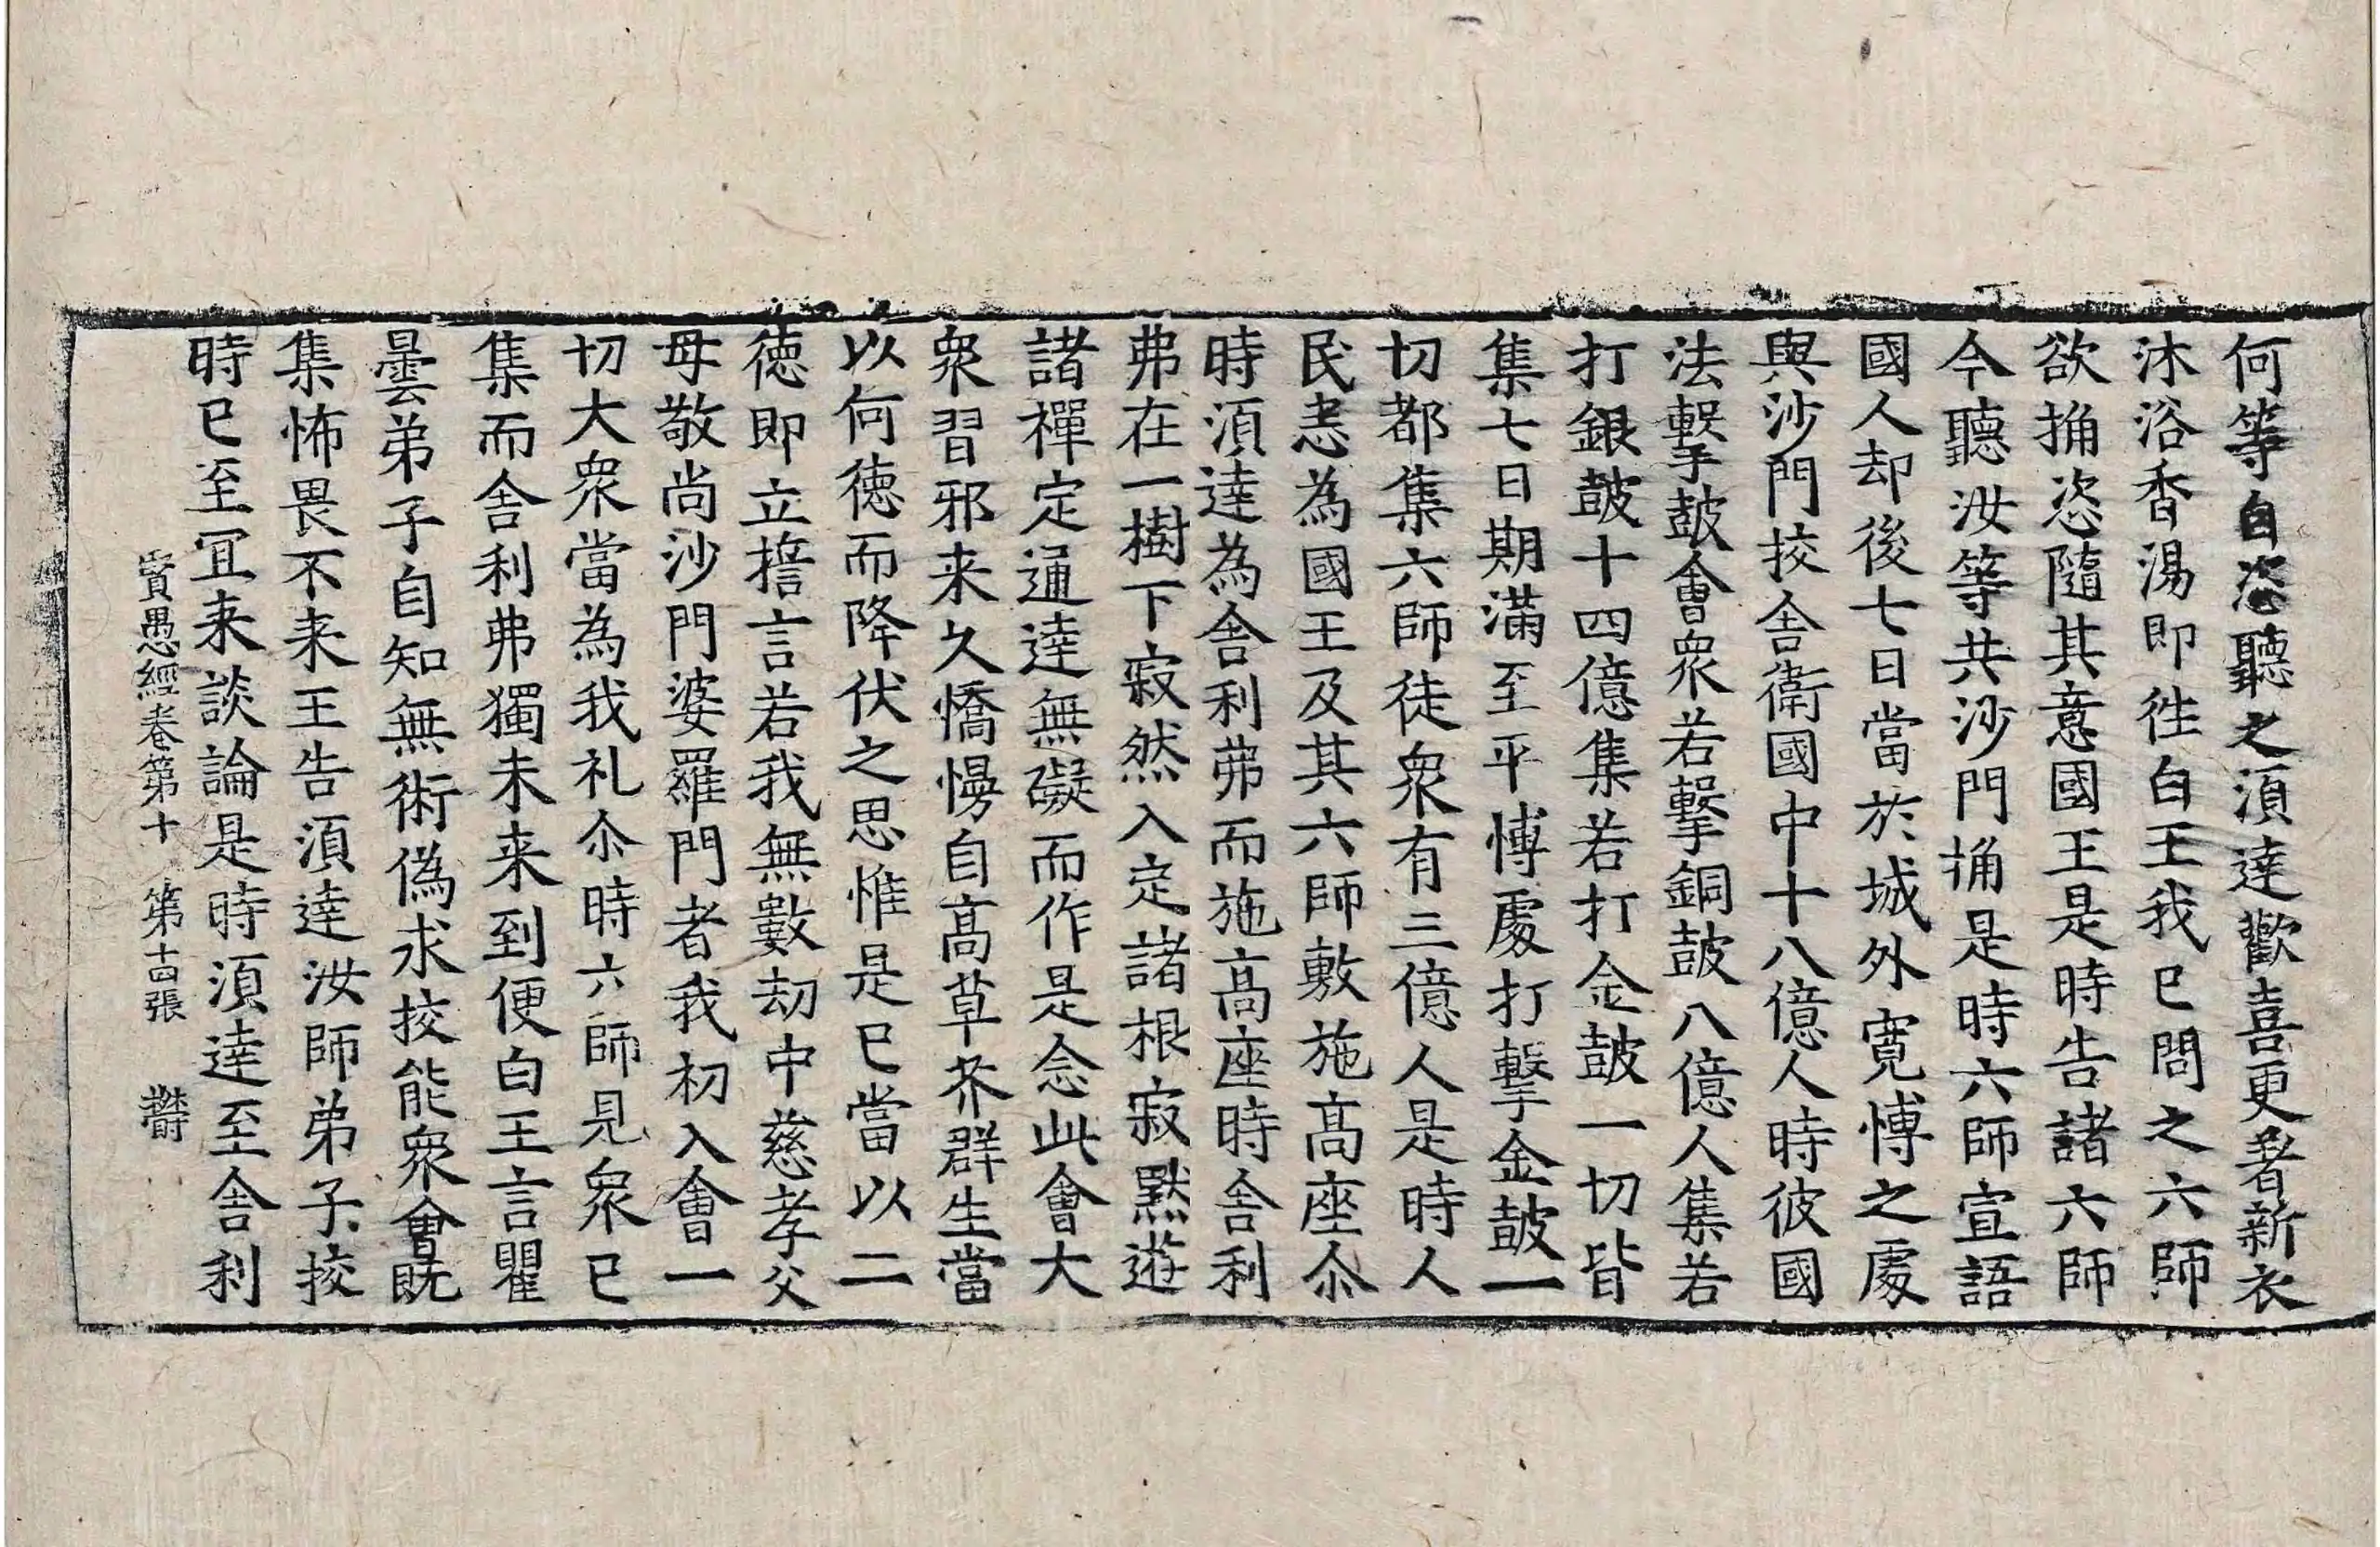 何等自恣聽之湏達歡喜更著新衣
沐浴香湯即徃白王我已問之六師
欲捔恣隨其意國王是時告諸六師
今聽汝等共沙門捔是時六師宣語
國人却後七日當於城外寛博之處
與沙門挍舎衛國中十八億人時彼國
法擊皷會衆若擊銅皷八億人集若
打銀皷十四億集若打金皷一切皆
集七日期滿至平博處打擊金皷一
切都集六師徒衆有三億人是時人
民悉為國王及其六師敷施髙座尒
時湏達為舎利弗而施髙座時舎利
弗在一樹下寂然入定諸根寂黙遊
諸禪定通達無礙而作是念此會大
衆習邪来久憍慢自髙草芥群生當
以何徳而降伏之思惟是已當以二
徳即立誓言若我無數劫中慈孝父
母敬尚沙門婆羅門者我初入會一
切大衆當為我礼尒時六師見衆已
集而舎利弗獨未来到便白王言瞿
曇弟子自知無術偽求挍能衆會既
集怖畏不来王告湏達汝師弟子挍
時已至冝来談論是時湏達至舎利
賢愚經卷第十　第十四張　欝